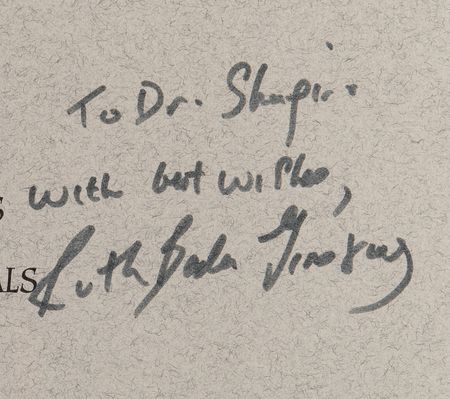 To Dr. Shapiro
S
with best wishes,
ALS
Ruth Bader Ginsburg